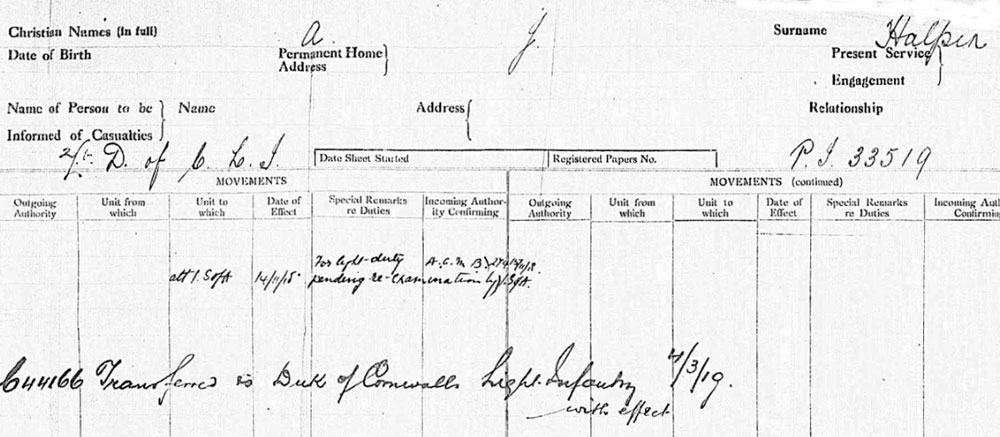 Christian Names (in full) A. J. Surname Halpin
Date of Birth Permanent Home Address Present Service
Engagement
Name of Person to be Informed of Casualties Name Address Relationship
D. of C. L. I. Date Sheet Started Registered Papers No. P. I. 33519
MOVEMENTS MOVEMENTS (continued)
Outgoing Authority Unit from which Unit to which Date of Effect Special Remarks re Duties Incoming Authority Confirming Outgoing Authority Unit from which Unit to which Date of Effect Special Remarks re Duties Incoming Auth Confirming
For light-duty A.C.M.B.
att 1. S of A 14/11/18 pending re-examination by
44166 Transferred to Duke of Cornwalls Light Infantry 4/3/19.
with effect